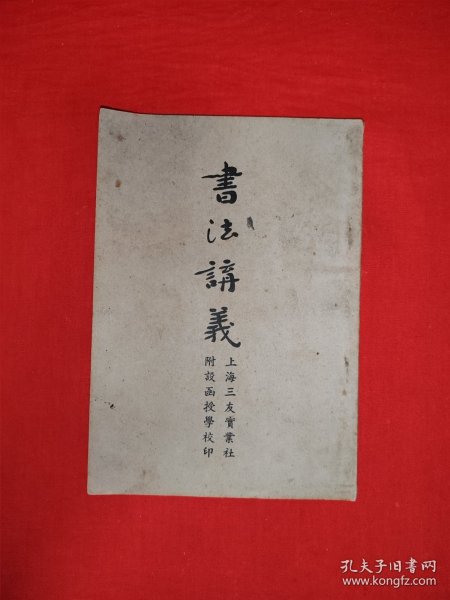 書法講義
上海三友實業社
附設函授學校印
孔夫子旧书网
www.kongfz.com